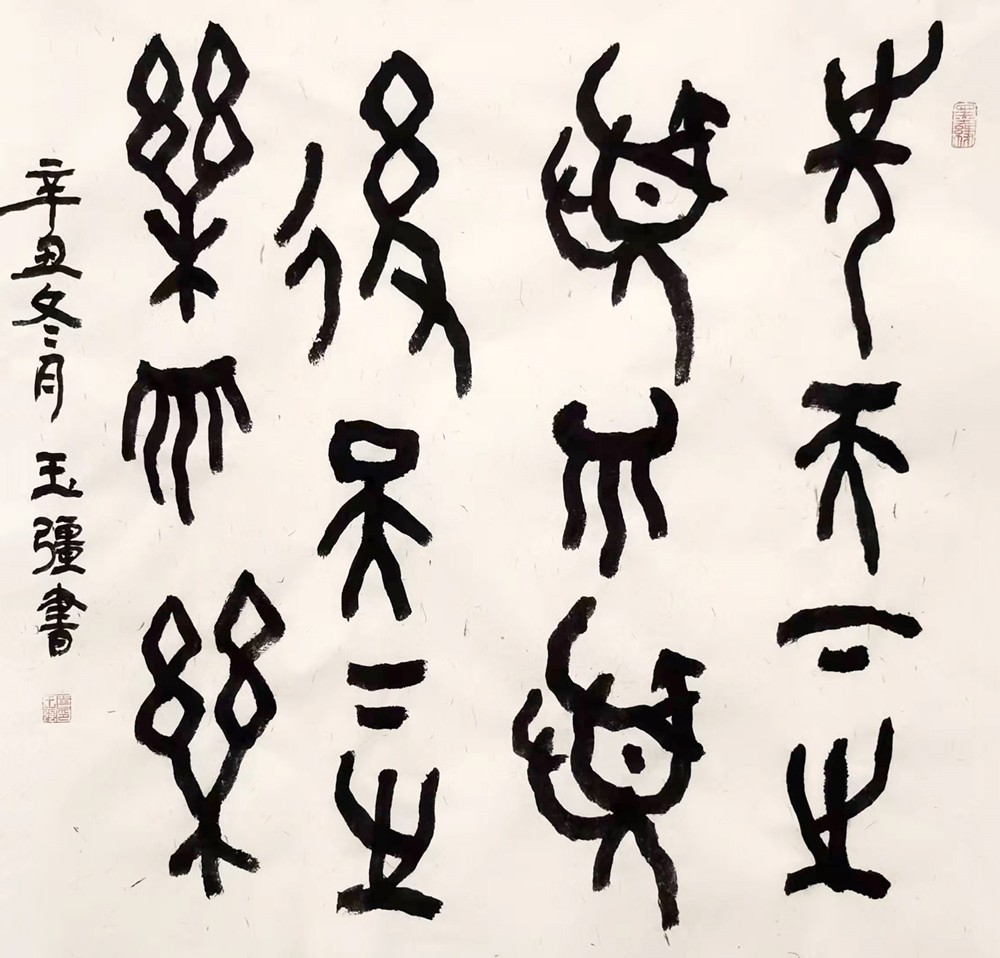 先天下之
憂而憂
後天下之
樂而樂
辛丑冬月 玉彊書